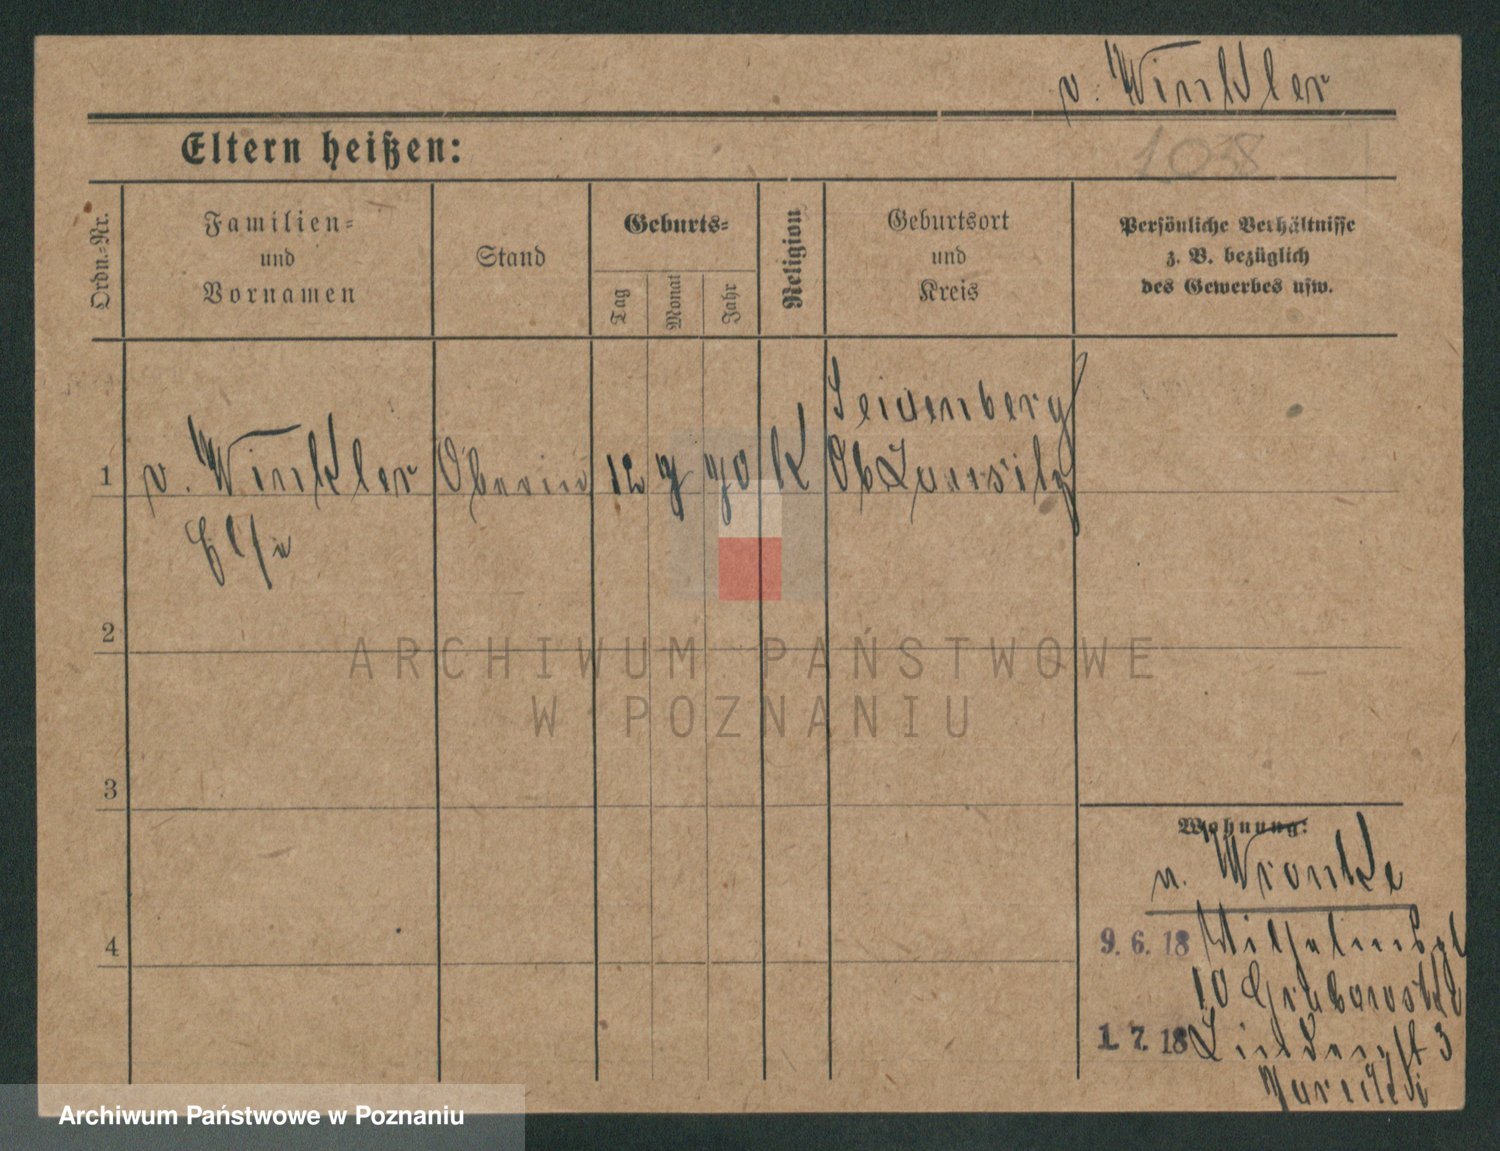 v. Winkler
Eltern heißen:
108
Ordn.-Nr.
Familien-
und
Vornamen
Stand
Geburts-
Tag
Monat
Jahr
Religion
Geburtsort
und
Kreis
Persönliche Verhältnisse
z. B. bezüglich
des Gewerbes usw.
1
v. Winkler
Else
Oberin
12
7
70
K
Seidenberg
Ob
2
3
4
Wohnung:
n. Wronke
9. 6. 18
10 Grabowski
1. 7. 18 Lindenst 3
ARCHIWUM PAŃSTWOWE
W POZNANIU
Archiwum Państwowe w Poznaniu